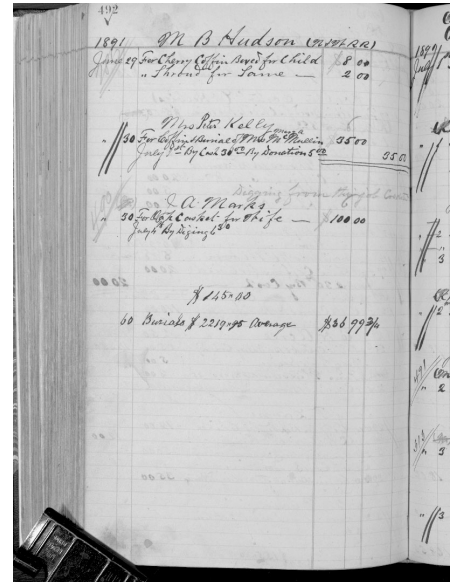 492
1891 M B Hudson (N.Y.N.H.R.R)
June 29 For Cherry Coffin Boxed for Child 8 00
" Shroud for Same — 2 00
Mrs Peter Kelly
" 30 For Coffin & Burial of Mrs McMullin 35 00
July 1st By Cash 30 00 By Donation 5 00 35 00
J. A. Marks
" 30 For Casket for Wife — $100 00
July By Diging 6
$145.00
60 Burials $2219.45 Average $36 99 3/4